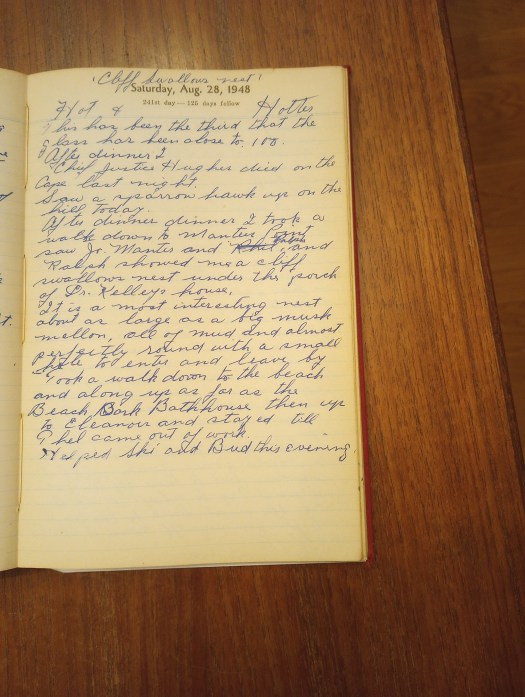 'Cliff swallows nest!
Saturday, Aug. 28, 1948
241st day — 125 days follow
Hot & Hotter
This has been the third that the
glass has been close to 100.
After dinner I
Chief Justice Hughes died on the
Cape last night.
Saw a sparrow hawk up on the
hill today.
After dinner dinner I took a
walk down to Manters Point
saw Jr. Manter and and
Ralph showed me a cliff
swallows nest under the porch
of Dr. Kelleys house.
It is a most interesting nest
about as large as a big musk
mellon, all of mud and almost
perfectly round with a small
hole to enter and leave by
Took a walk down to the beach
and along up as far as the
Beach Bathhouse then up
to Eleanour and stayed till
Phel came out of work.
Helped Ski and Bud this evening.
t.